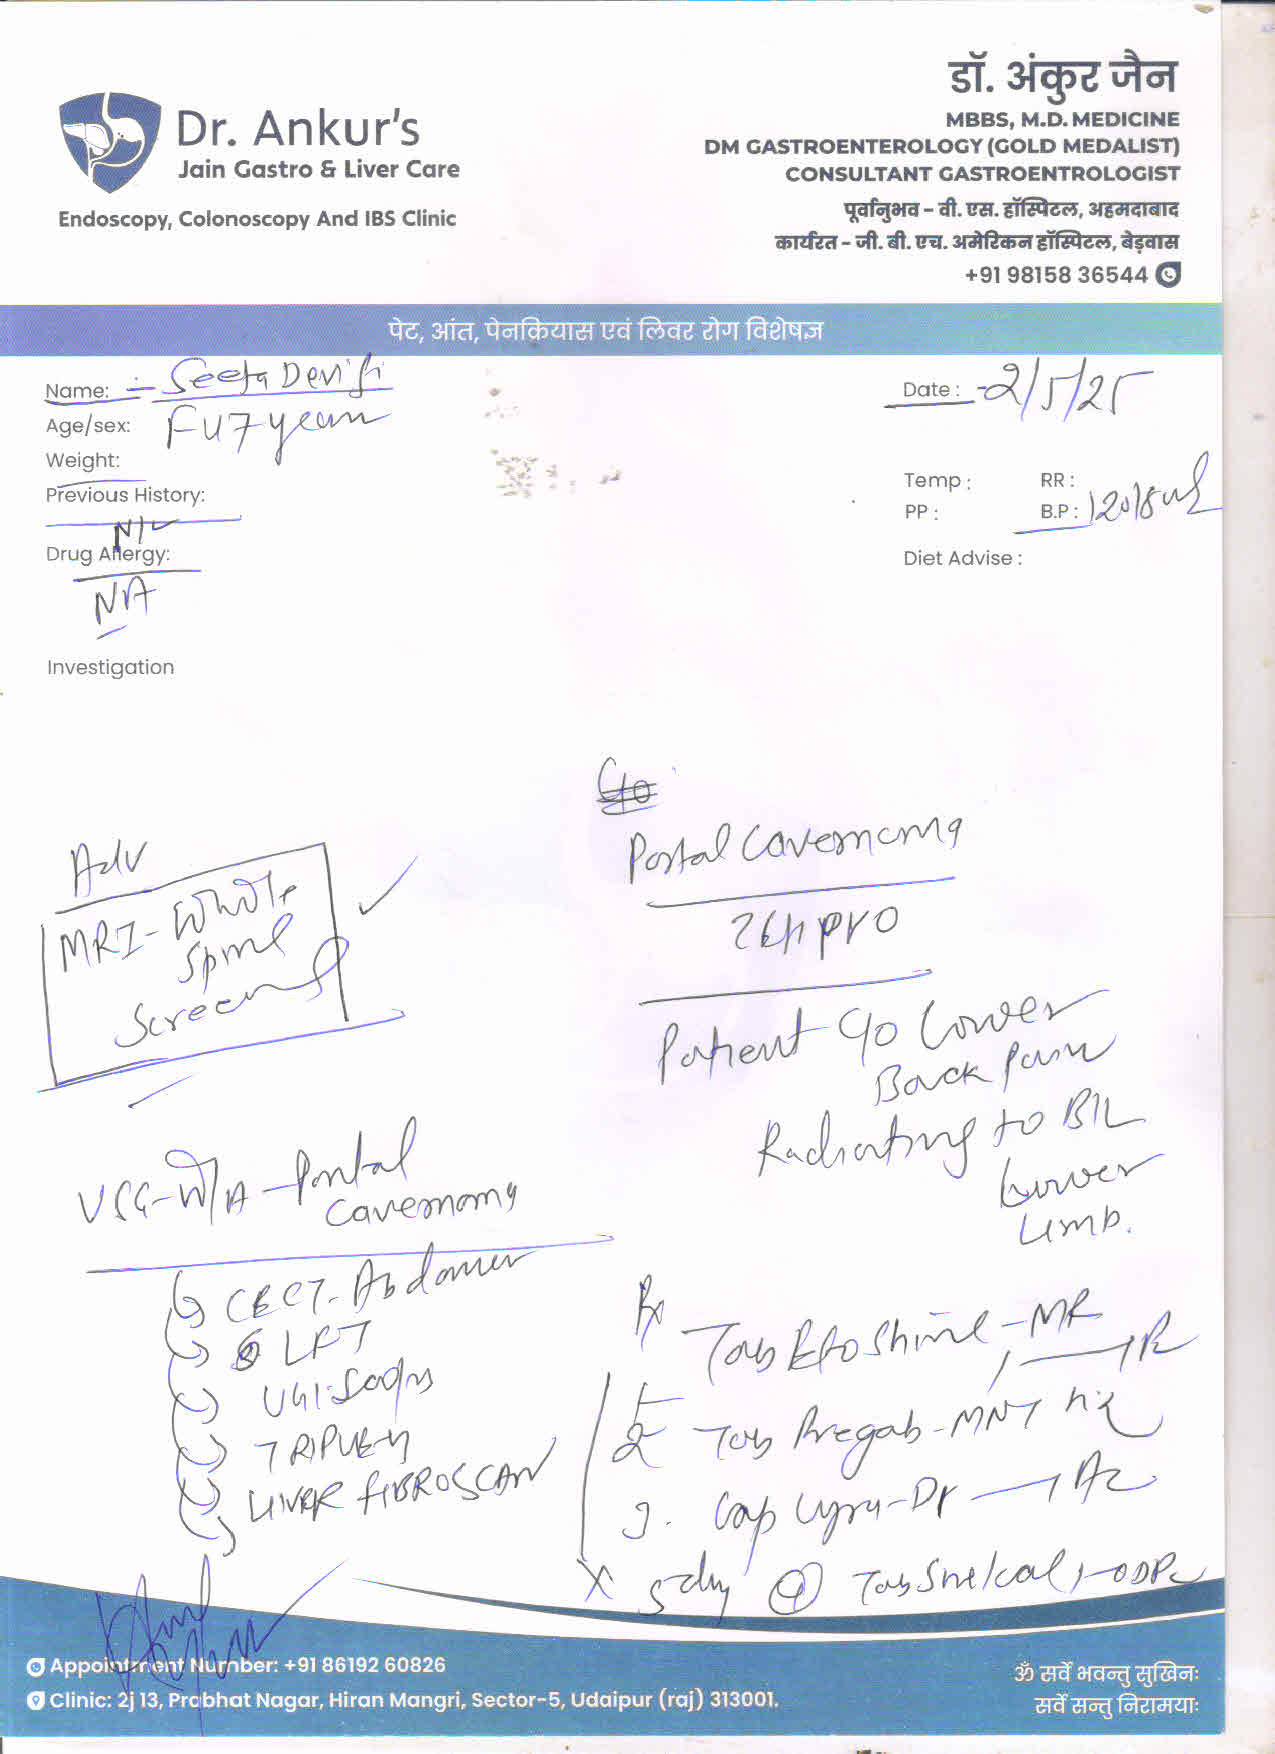 Dr. Ankur's
Jain Gastro & Liver Care
Endoscopy, Colonoscopy And IBS Clinic
डॉ. अंकुर जैन
MBBS, M.D. MEDICINE
DM GASTROENTEROLOGY (GOLD MEDALIST)
CONSULTANT GASTROENTROLOGIST
पूर्वानुभव - वी. एस. हॉस्पिटल, अहमदाबाद
कार्यरत - जी. बी. एच. अमेरिकन हॉस्पिटल, बेड़वास
+91 98158 36544
पेट, आंत, पेनक्रियास एवं लिवर रोग विशेषज्ञ
Name: Seeta Devi ji
Date: 2/5/25
Age/sex: F 47 year
Weight:
Temp :
RR :
Previous History:
PP :
B.P :
Drug Allergy:
NA
Diet Advise :
Investigation
Adv
MRI - Whole
Spine
Screen
Portal Cavernoma
EHPVO
Patient C/o Lower
Back Pain
Radiating to B/L
Lower
Limb.
USG - W/A - Portal
Cavernoma
CECT - Abdomen
LFT
UGI Scopy
TRIPLE-H
LIVER FIBROSCAN
Rx
Tab Etoshine - MR
2 Tab Pregab - MNT
3. Cap
5 day
Appointment Number: +91 86192 60826
Clinic: 2j 13, Prabhat Nagar, Hiran Mangri, Sector-5, Udaipur (raj) 313001.
ॐ सर्वे भवन्तु सुखिनः
सर्वे सन्तु निरामयाः